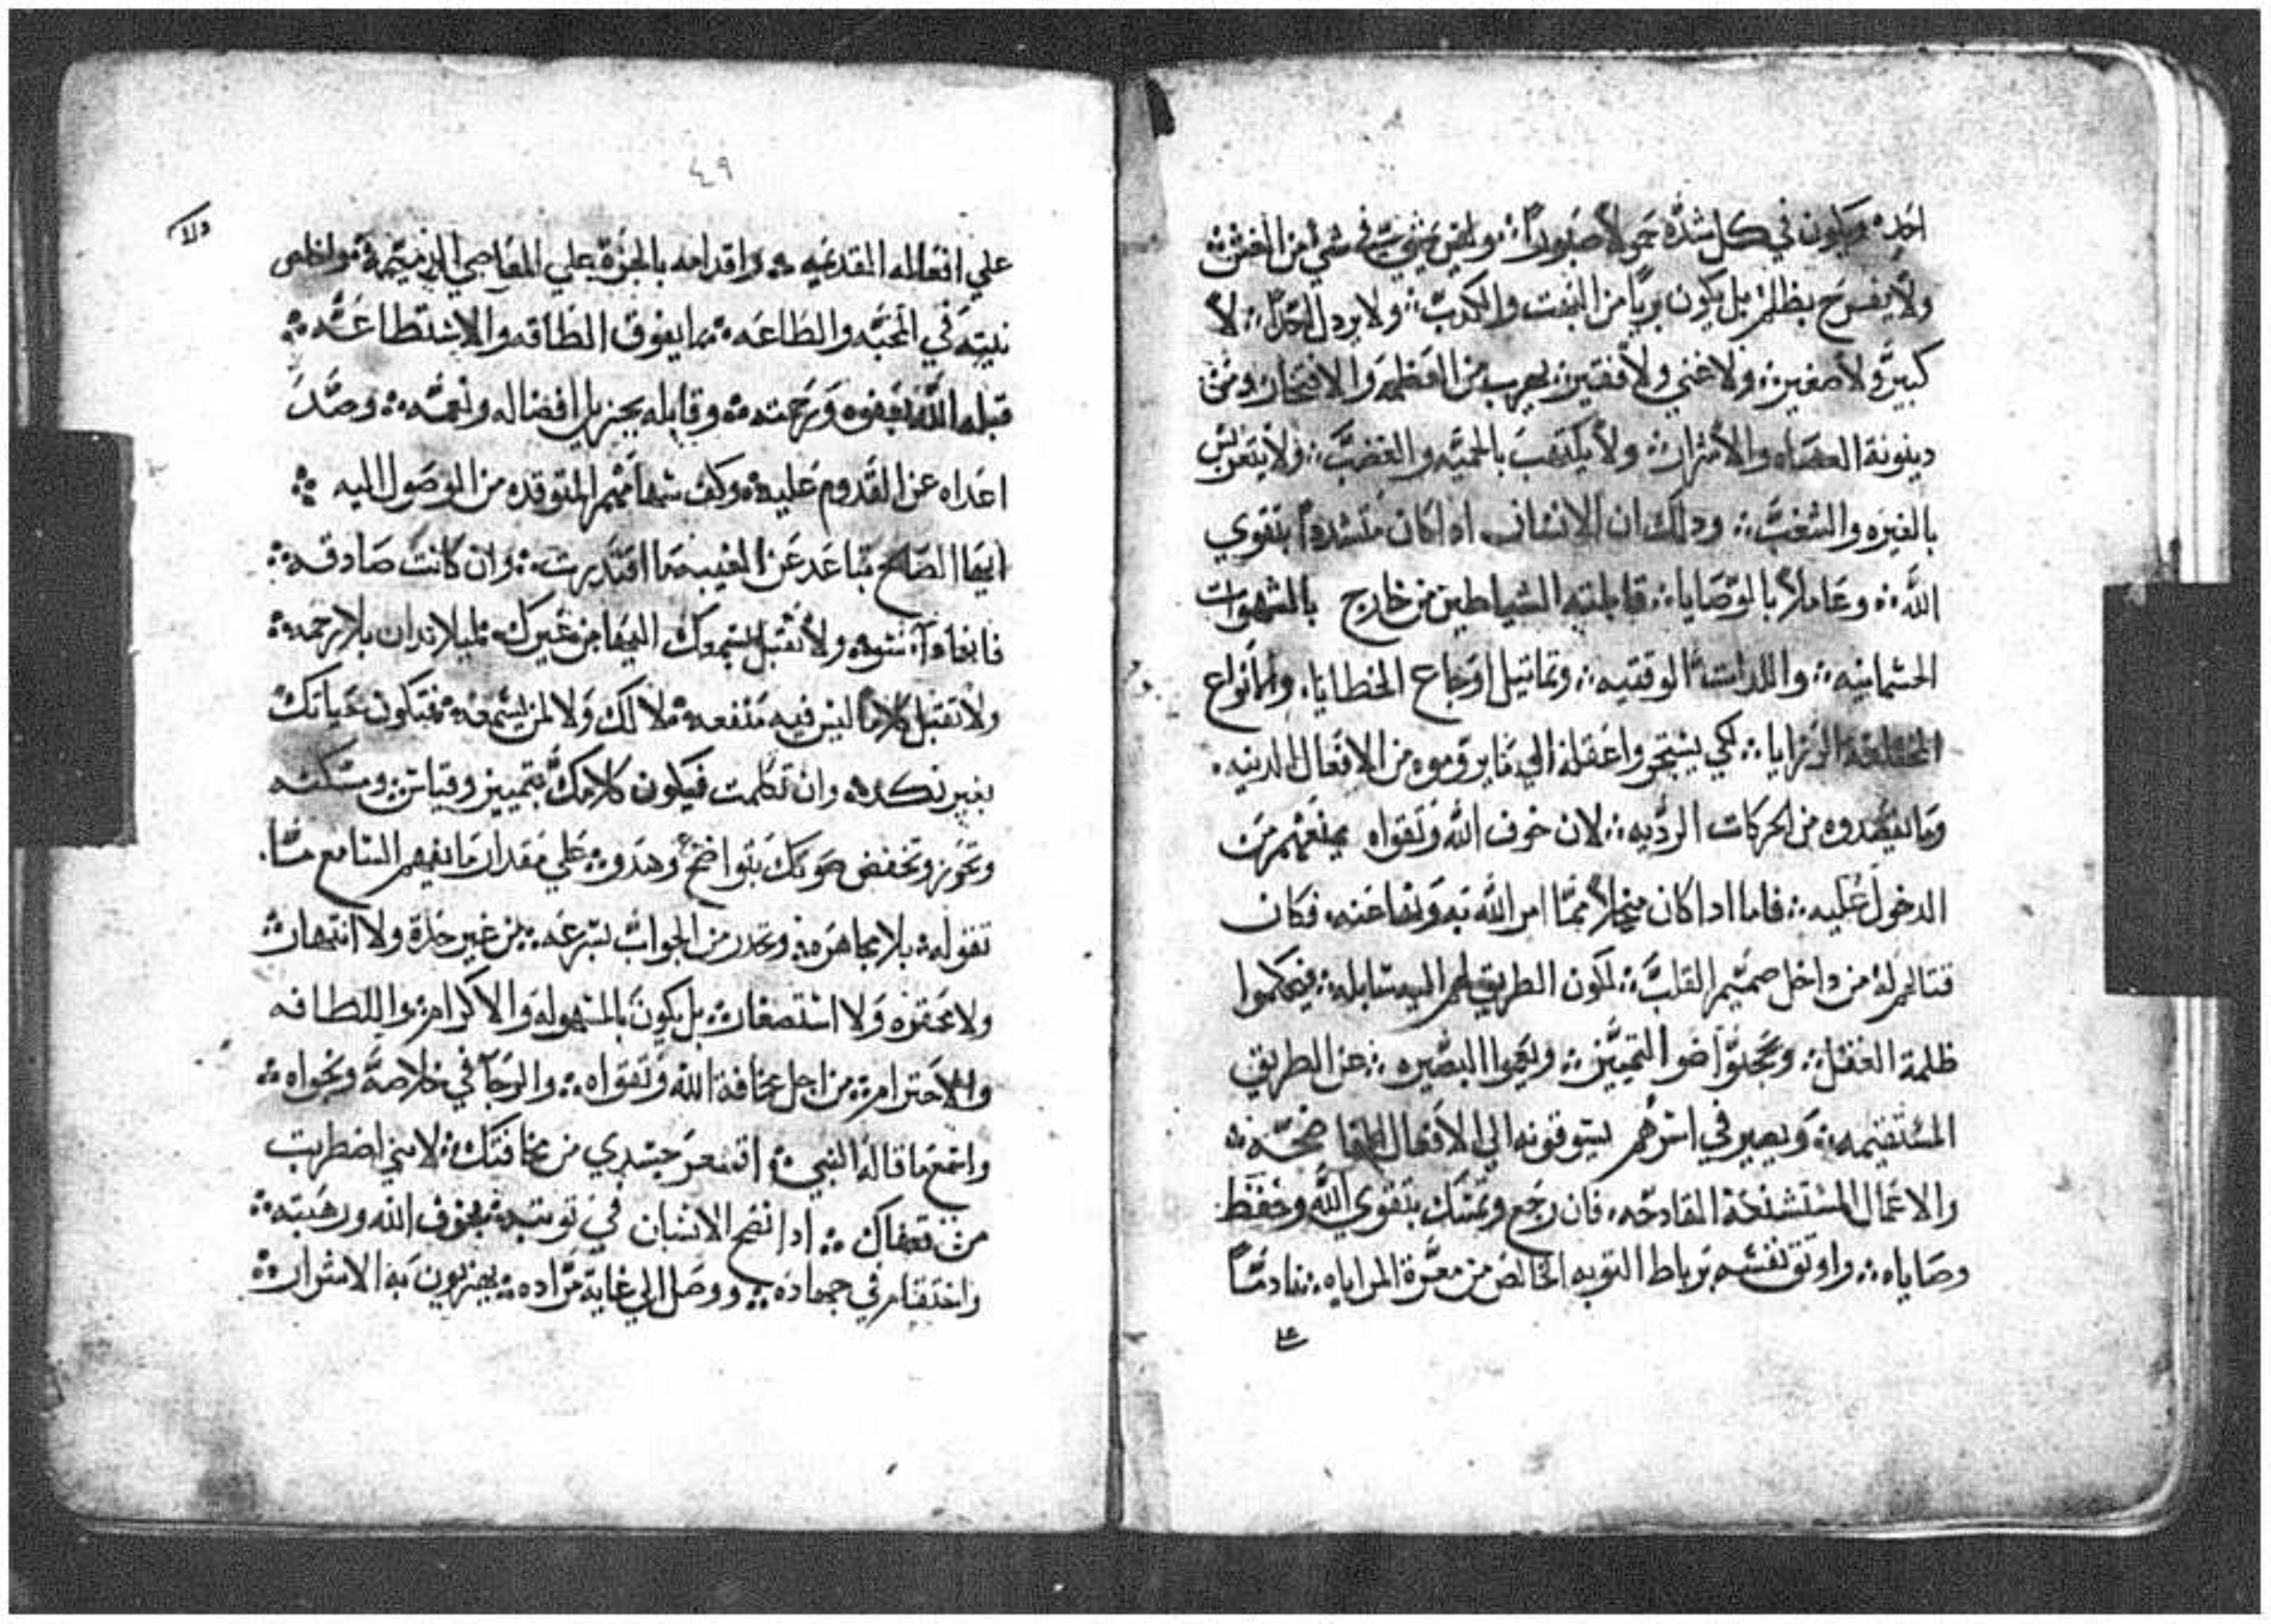 احد ويكون في كل شده حمولاً صبوراً وليس في شي من الغش
ولا يفرح بظلم بل يكون برياً من المقت والكدب ولا يردل احداً لا
كبير ولا صغير ولا غني ولا فقير يهرب من العظمه والافتخار ومن
دينونة العصاه والاشرار ولا يلتهب بالحميه والغضب ولا
بالغيره والشغب ودلك ان الانسان ادا كان متشدداً بتقوي
الله وعاملاً بالوصايا قابلته الشياطين من خارج بالشهوات
الجسمانيه واللدات الوقتيه وتماتيل اوجاع الخطايا والانواع
المختلفة الرزايا لكي يستجروا عقله الي ما يروموه من الافعال الدنيه
وما يقصدوه من الحركات الرديه لان خوف الله وتقواه يمنعهم من
الدخول عليه فاما ادا كان منحلاً مما امر الله به ونها عنه فكان
قتالهم له من داخل صميم القلب لكون الطريق لهم اليه سابله فيحكموا
ظلمة الغفل ضوا التمييز ويعموا البصيره عن الطريق
المستقيمه ويصير في اسرهم يسوقونه الي الافعال الفاضحه
والاعمال المستشنعة القادحه فان رجع وتمسك بتقوي الله وحفظ
وصاياه واوتق نفسه برباط التوبه الخالص من معرة المراياه نادماً
علي
٤٩
علي افعاله المقدميه واقدامه بالجراة علي المعاصي الدميمة واخلص
نيته في المحبه والطاعه ما يفوق الطاقه والاستطاعه
قبله الله بعفوه ورحمته وقابله بجزيل افضاله ونعمه وصد
اعداه عن القدوم عليه وكف سهامهم المتوقده من الوصول اليه
ايها الصالح تباعد عن الغيبه ما اقتدرت وان كانت صادقه
فانها ولا تقبل بسمعك اليها من غيرك ليلا تدان بلا رحمه
ولا تقبل كلاماً ليس فيه منفعه لا لك ولا لمن يسمعه فتكون حياتك
بغير نكد وان تكلمت فيكون كلامك بتمييز وقياس ومسكنه
وتحرز وتخفض صوتك بتواضع وهدو علي مقدار ما يفهم السامع ما
تقوله بلا مجاهره وتحدر من الجواب بسرعه من غير حدة ولا انتهار
ولا محقره ولا استصغار بل يكون بالسهوله والاكرام واللطافه
والاحترام من اجل مخافة الله وتقواه والرجا في خلاصه ونجواه
واسمع ما قاله النبي اقشعر جسدي من مخافتك لانني اضطربت
من قضاك ادا نجح الانسان في توبته بخوف الله ورهبته
واستقام في جهاده ووصل الي غاية مراده يهزون به الاشرار